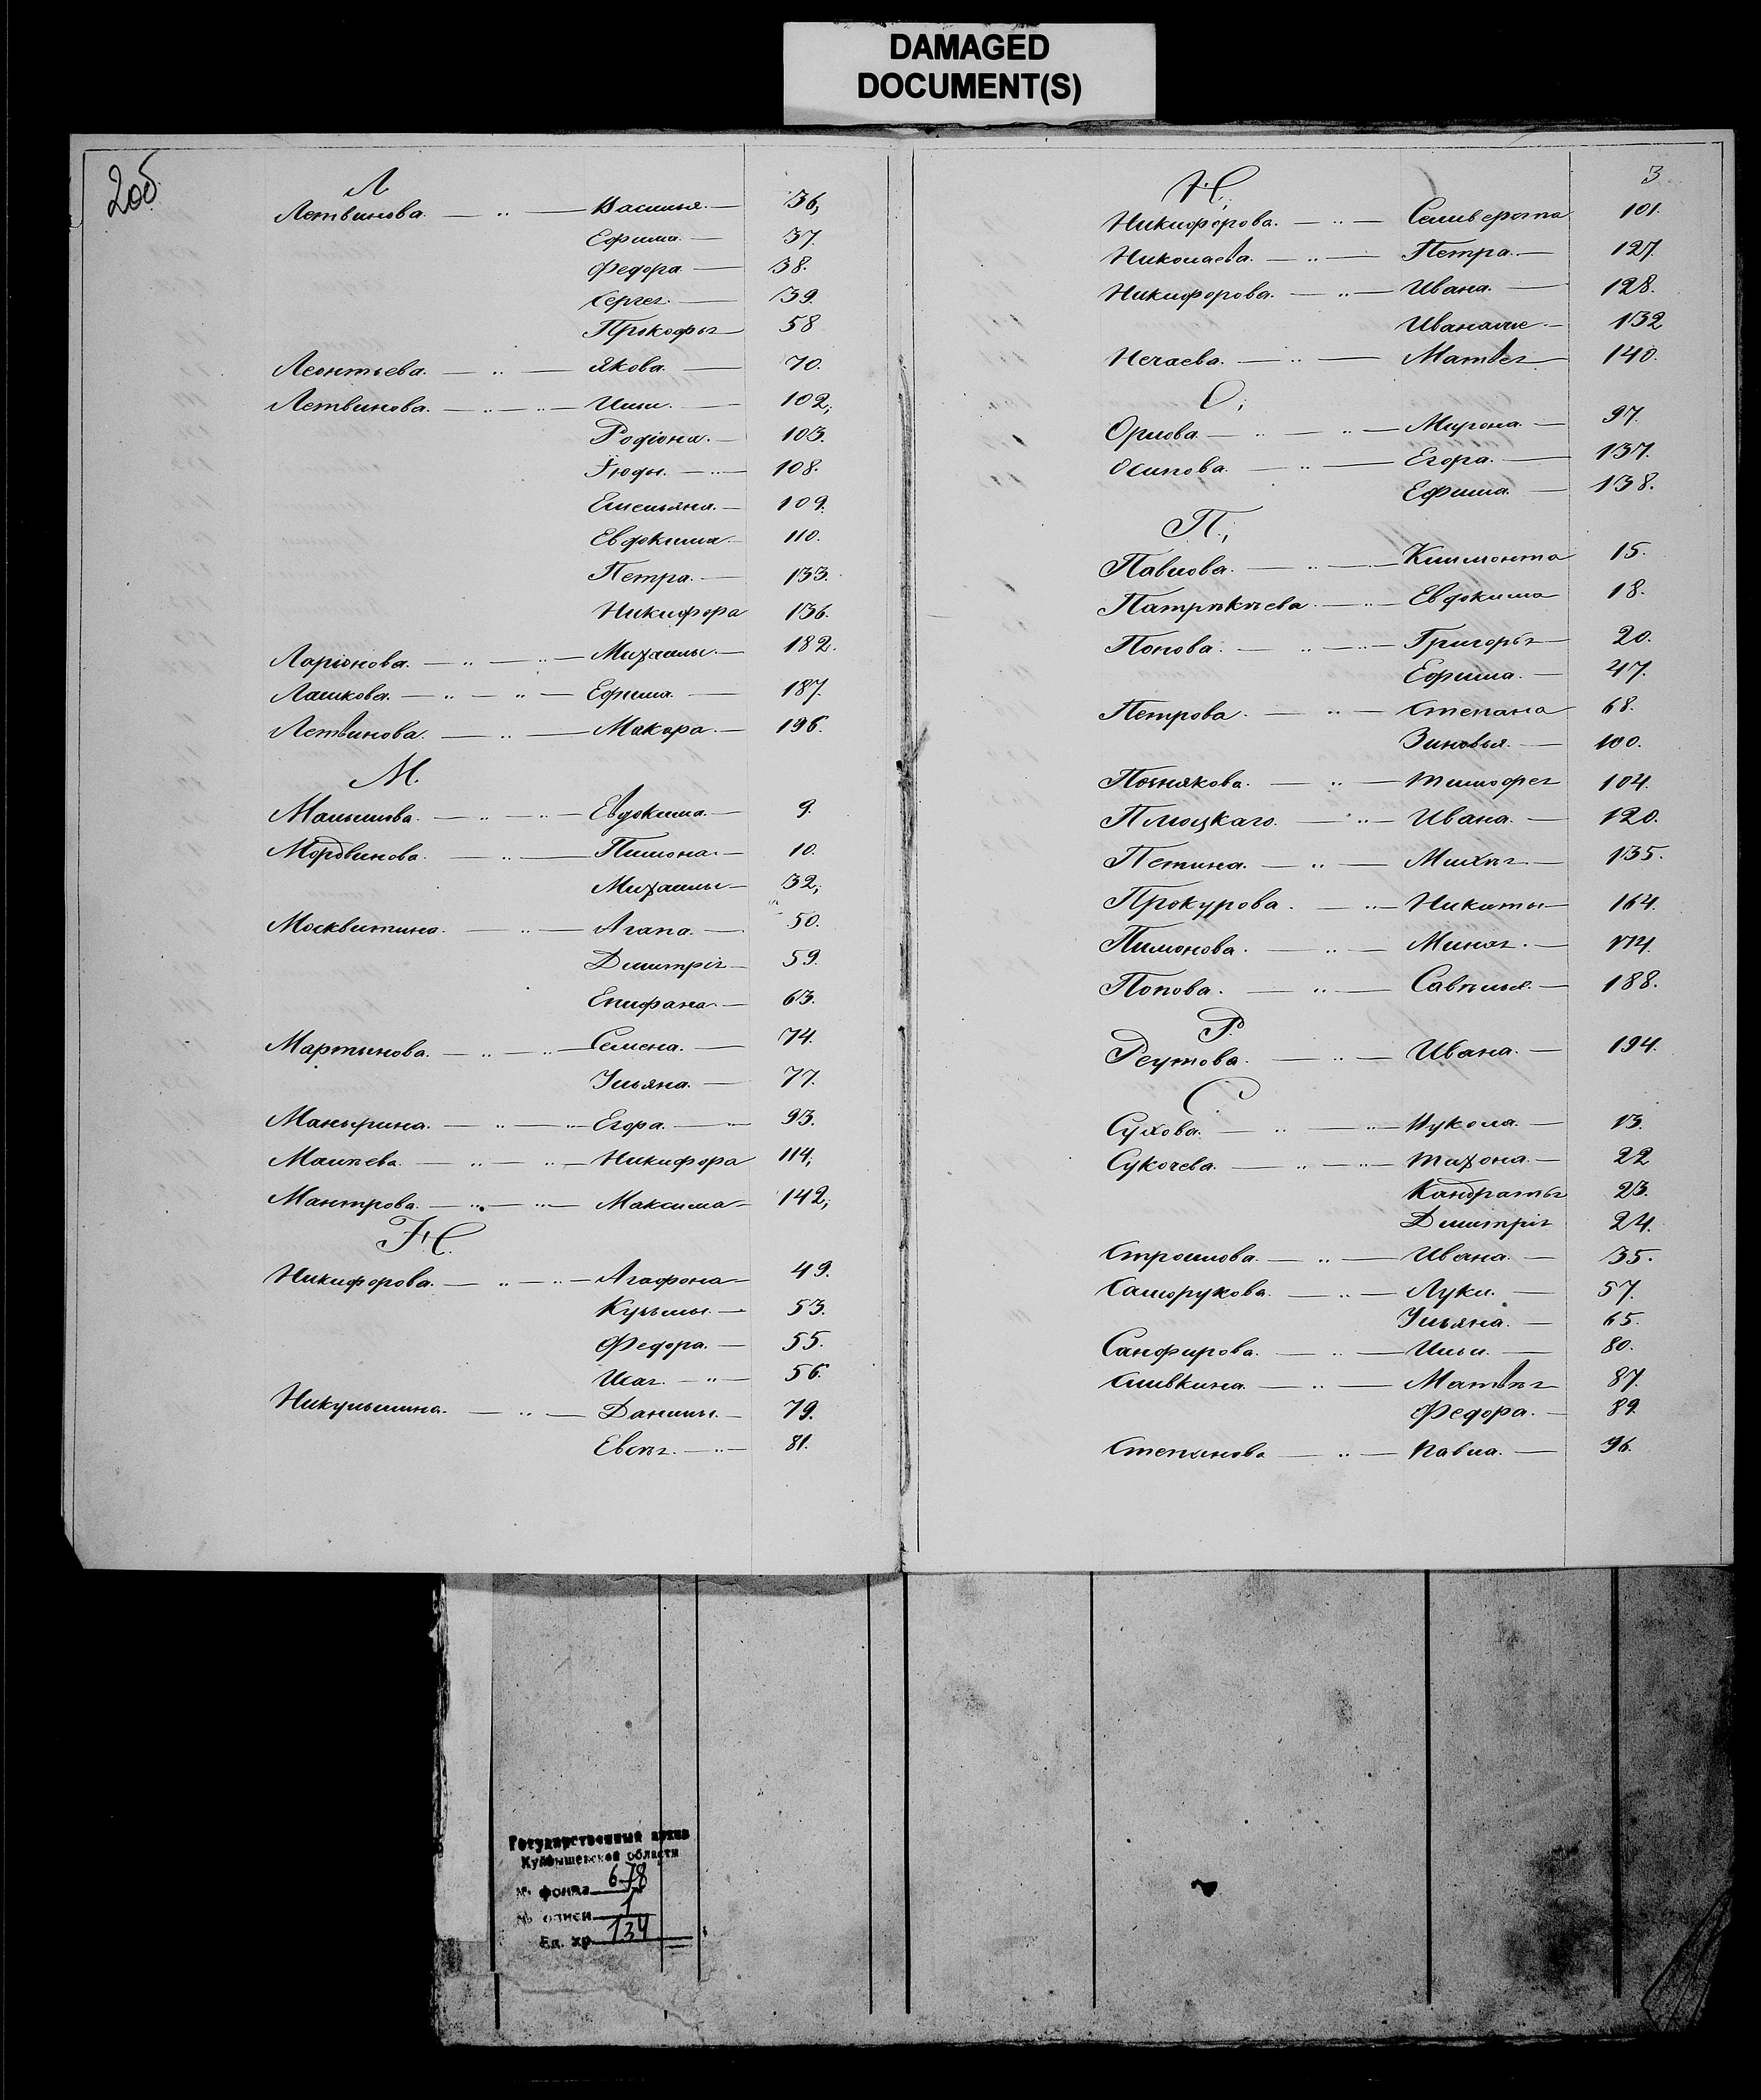 DAMAGED
DOCUMENT(S)
2об
Л
Летвинова. — „ — Василья. — 36,
Ефима — 37.
Федора — 38.
Сергея. — 39.
Прокофья — 58
Леонтьева. — „ — Якова. — 70.
Летвинова. — „ — „ — Ильи. — 102,
Родіона. — 103.
Іюды. — „ — 108.
Емельяна. — 109.
Евдокима — 110.
Петра. — 133.
Никифора 136.
Ларіонова. — „ — „ — Михаилы. — 182.
Лашкова. — „ — „ — Ефима. — 187.
Летвинова. — „ — Макара. — 196.
М.
Малышова. — „ — „ — Евдокима. — 9.
Мордвинова. — „ — Пимона. — 10.
Михаилы — 32,
Москвитина. — „ — Агапа. — 50.
Димитрія — 59.
Епифана. — 63.
Мартынова. — „ — „ — Семена. — 74.
Ульяна. — 77.
Манырина. — „ — „ — Егора. — „ 93.
Малѣева. — „ — „ — Никифора 114,
Мантрова. — „ — „ — Максима — 142,
Н.
Никифорова. — „ — „ — Агафона — 49.
Кузьмы. — 53.
Федора. — 55.
Исая. — „ — 56.
Никульшина. — „ — Данилы. — 79.
Евсѣя. — „ — 81.
3
Н.
Никифорова. — „ — Селиверста 101.
Николаева. — „ — Петра. — 127.
Никифорова. — „ — Ивана. — 128.
Ивана же. — 132
Нечаева. — „ — Матвея — 140.
О,
Орлова — „ — „ — Мирона. — 97.
Осипова. — „ — Егора. — 137.
Ефима. — 138.
П.,
Павлова. — „ — Климонта 15.
Патрѣкѣева. — „ — Евдокима 18.
Попова. — „ — „ — Григорья — 20.
Ефима. — 47.
Петрова. — „ — Степана 68.
Зиновья. — 100.
Познякова. — „ — Тимофея 104.
Плюцкаго. — „ — Ивана. — 120.
Петина. — „ — Михѣя. — 135.
Прокурова. — „ — Никиты — 164.
Пимонова. — „ — Миная. — 174.
Попова. — „ — Савѣлья. — 188.
Р.
Реутова. — „ — Ивана. — 194.
С
Сухова. — „ — „ — Вукола. — 13.
Сукочева. — „ — „ — Тихона. — 22
Кандратья 23.
Димитрія 24.
Строилова. — „ — Ивана. — 35.
Саморукова. — „ — Луки. — 57.
Ульяна. — 65.
Санфирова. — „ — Ильи. — 80.
Сливкина. — „ — Матвѣя 87.
Федора. — 89.
Степанова — „ — Павла. — 96.
Государственный архив
Куйбышевской области
№ фонда 678
№ описи 1
Ед. хр. 134